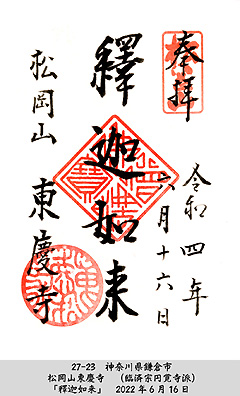 奉拝
令和四年
六月十六日
釋迦如来
松岡山
東慶寺
27-23 神奈川県鎌倉市
松岡山東慶寺 (臨済宗円覚寺派)
「釋迦如来」 2022年6月16日